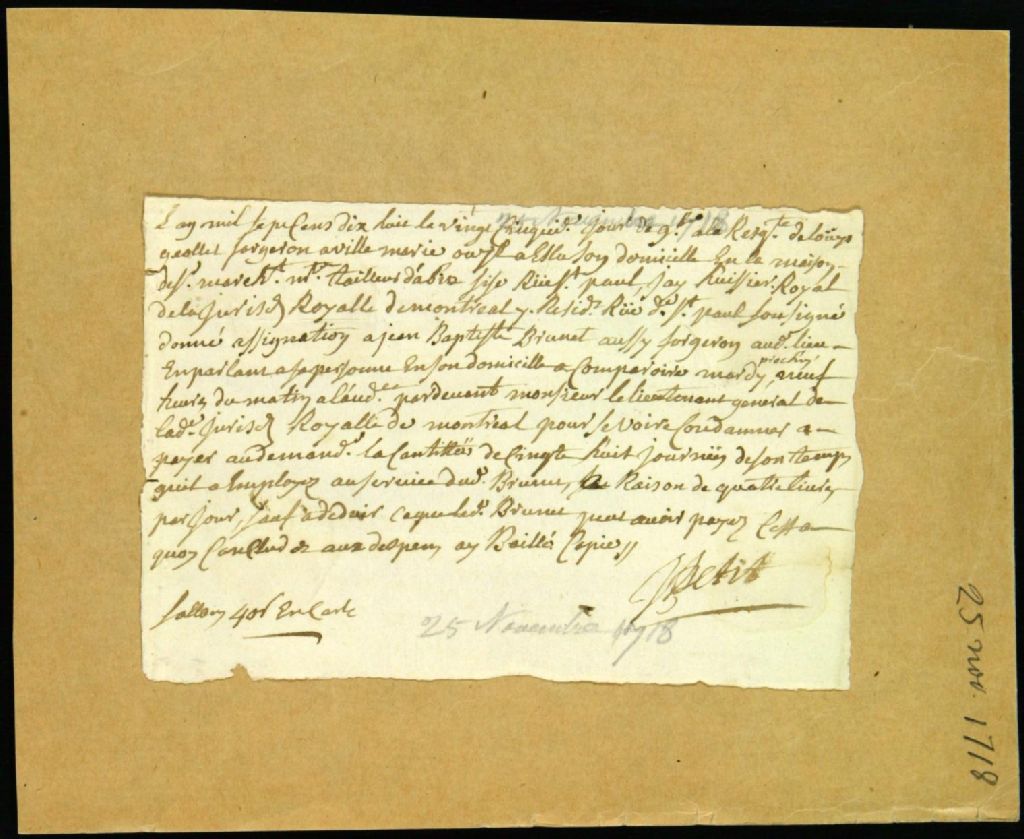 L'an mil sept Cens dix huit le vingt Cinquie. jour de 9bre a la Reqte de louys
gaollet forgeron a ville marie ou Il a Eslu son domicille En la maison
du Sr. marcht. mr. tailleur d'abis sise Rüe St. paul, Jay huissier Royal
de la Jurisdon Royalle de montreal y Residt. Rüe de St. paul soubsigné
donné assignation a jean Baptiste Brunet aussy forgeron aud. lieu
En parlant a sa personne En son domicille a Comparoire mardy prochin neuf
heures du matin a l'audce. pardevant monsieur le lieutenant general de
lade. Jurisdon Royalle de montreal pour se voire Condamner a
payer au demandr. la Cantittée de vingte huit journées de son temps
quil a Employez au service dud. Brunet, a Raison de quattre livres
par jour, sauf a deduire ce que led. Brunet peut avoir payez Cest a
quoy Conclud & aux despens ay Baillé Copie //
JPetit
25 Novembre 1718
25 Novembre 1718
25 nov. 1718